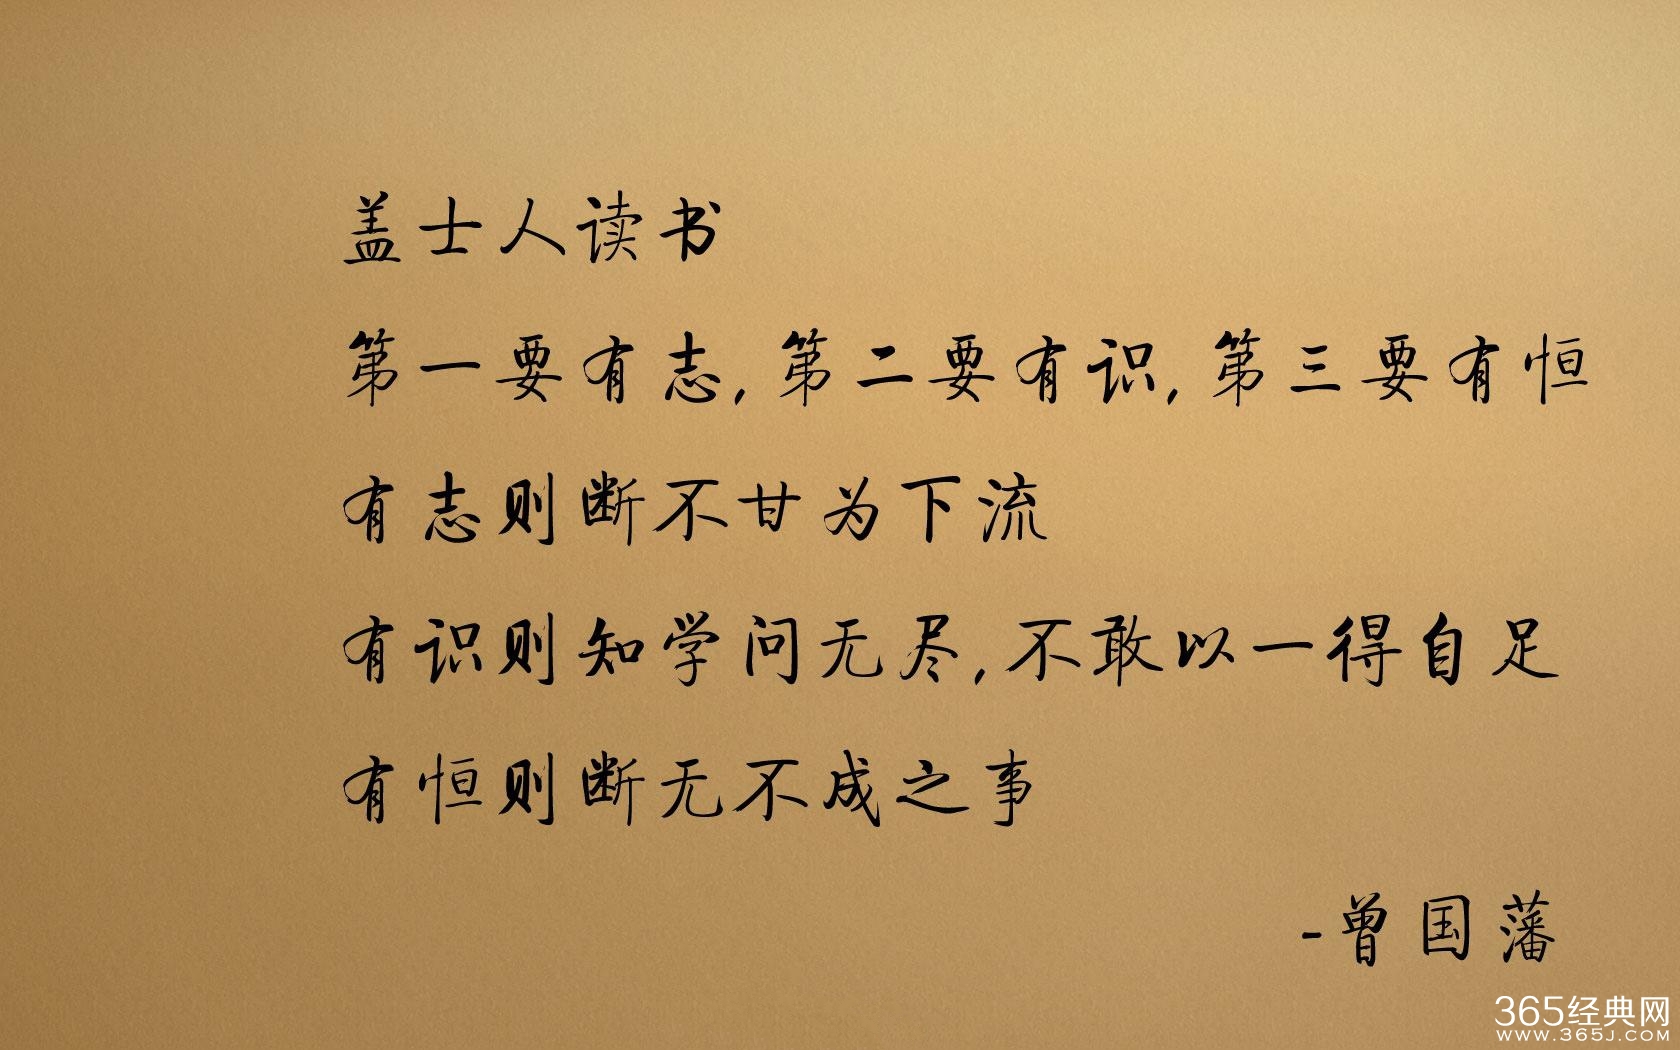 盖士人读书
第一要有志,第二要有识,第三要有恒
有志则断不甘为下流
有识则知学问无尽,不敢以一得自足
有恒则断无不成之事
-曾国藩
365经典网
WWW.365J.COM